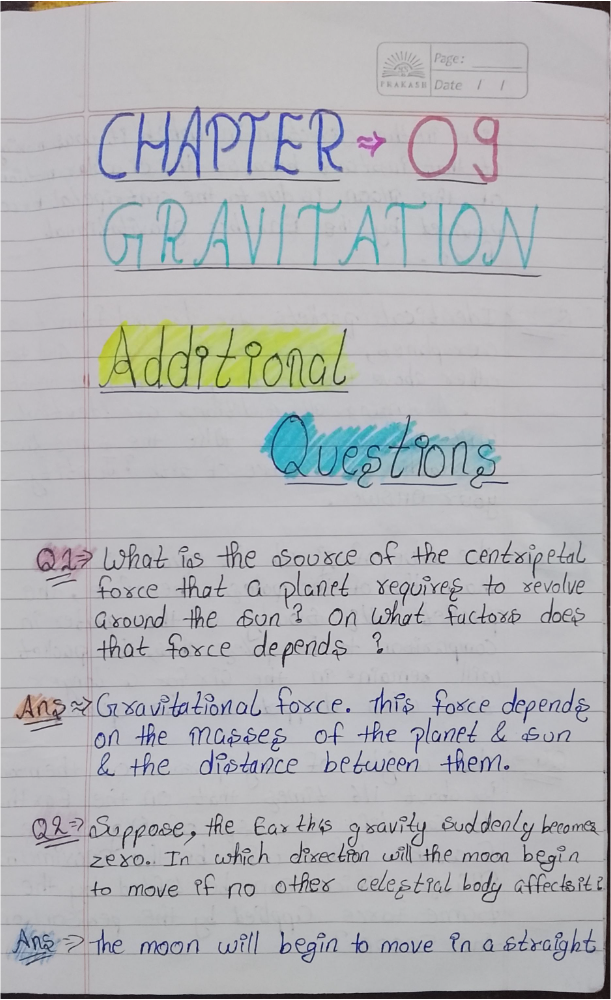 Page:
PRAKASH
Date / /
CHAPTER ⇒ 09
GRAVITATION
Additional
Questions
Q1⇒ What is the source of the centripetal
force that a planet requires to revolve
around the sun? On what factors does
that force depends ?
Ans⇒ Gravitational force. This force depends
on the masses of the planet & sun
& the distance between them.
Q2⇒ Suppose, the Earths gravity suddenly becomes
zero. In which direction will the moon begin
to move if no other celestial body affects it?
Ans⇒ the moon will begin to move in a straight